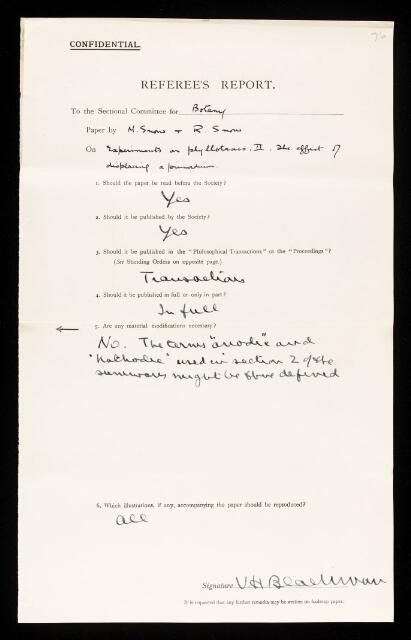 76
CONFIDENTIAL.
REFEREE'S REPORT.
To the Sectional Committee for Botany
Paper by M. Snow & R. Snow
On Experiments on phyllotaxis. II. The effect of
displacing a primordium.
1. Should the paper be read before the Society?
Yes
2. Should it be published by the Society?
Yes
3. Should it be published in the "Philosophical Transactions" or the "Proceedings"?
(See Standing Orders on opposite page.)
Transactions
4. Should it be published in full or only in part?
In full
5. Are any material modifications necessary?
No. The terms "anodic" and
"kathodic" used in section 2 of the
summary might be defined
6. Which illustrations, if any, accompanying the paper should be reproduced?
all
Signature V H Blackman
It is requested that any further remarks may be written on foolscap paper.